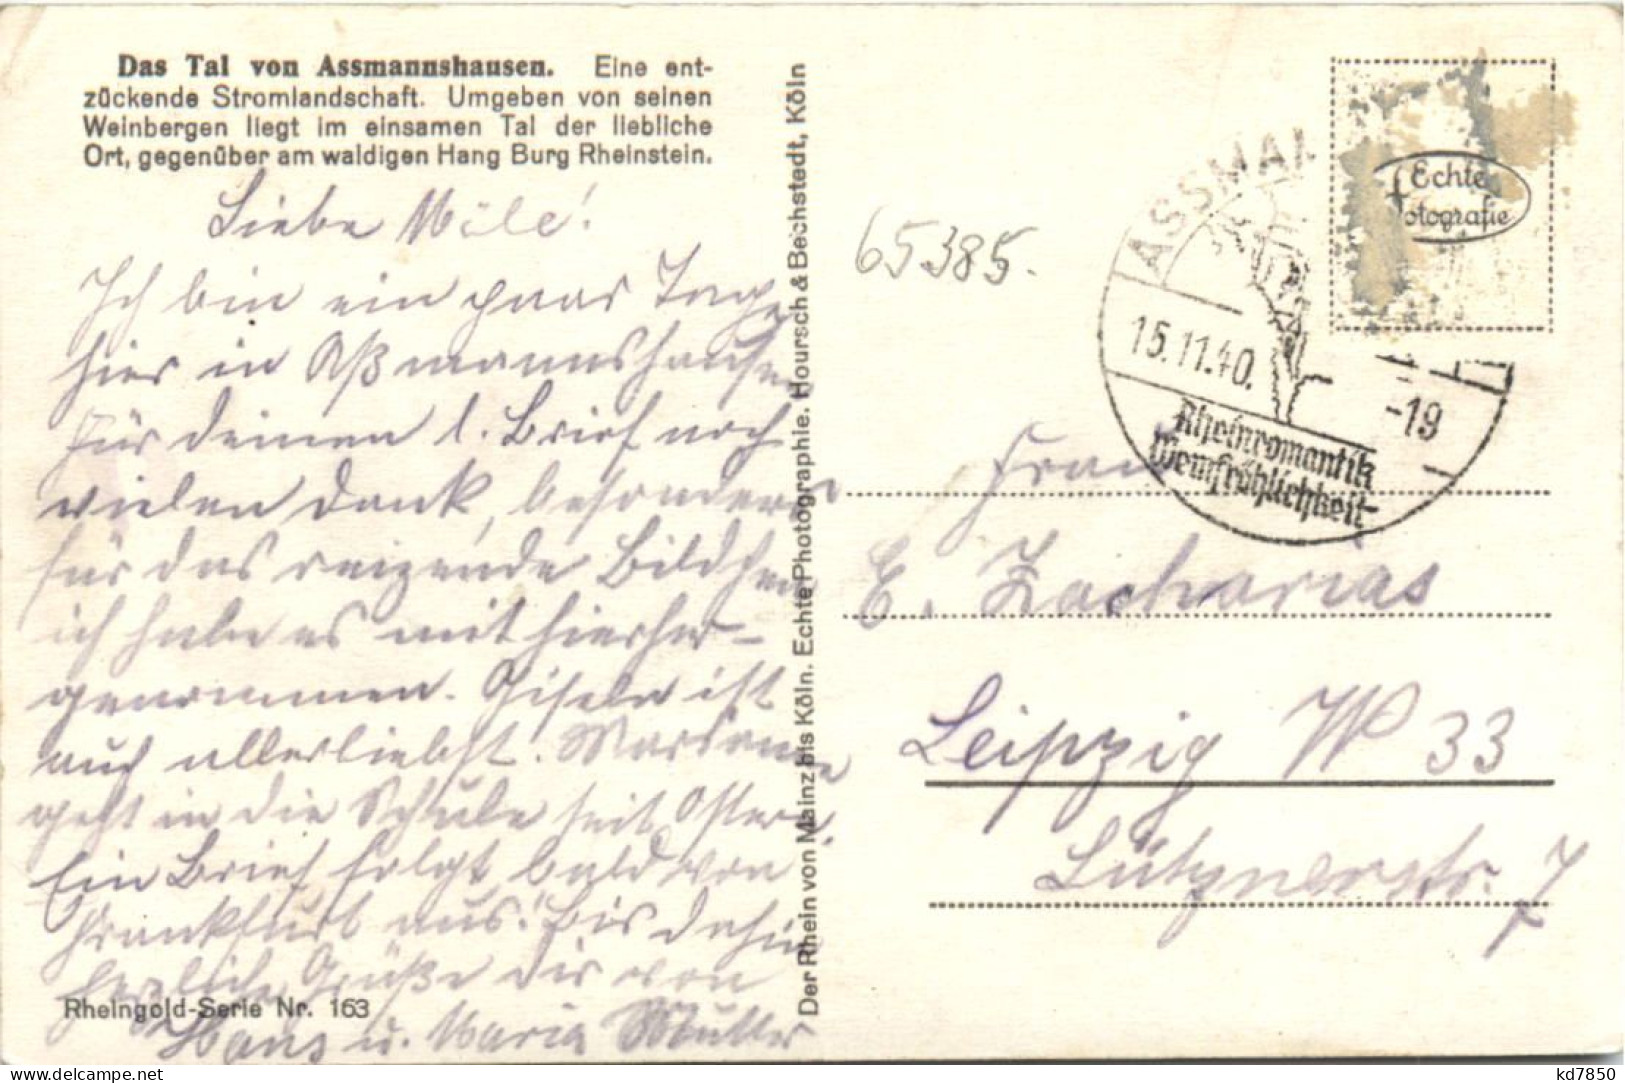 Das Tal von Assmannshausen. Eine ent-
zückende Stromlandschaft. Umgeben von seinen
Weinbergen liegt im einsamen Tal der liebliche
Ort, gegenüber am waldigen Hang Burg Rheinstein.
Liebe
Ich bin ein paar Tage
hier in Aßmannshausen
für deinen l. Brief noch
vielen Dank, besonders
für das reizende Bildchen
ich habe es mit hierher-
genommen. Gisela ist
auch allerliebst. Marianne
geht in die Schule seit Ostern.
Ein Brief folgt bald von
Frankfurt aus. Bis dahin
herzliche Grüße dir von
Hans u. Maria Müller
Rheingold-Serie Nr. 163
Der Rhein von Mainz bis Köln. Echte Photographie. Hoursch & Bechstedt, Köln
65385.
ASSMAN
15.11.40. -19
Rheinromantik
Weinfröhlichkeit
Echte
Fotografie
Frau
E. Zacharias
Leipzig W 33
Lütznerstr. 7
delcampe.net
kd7850